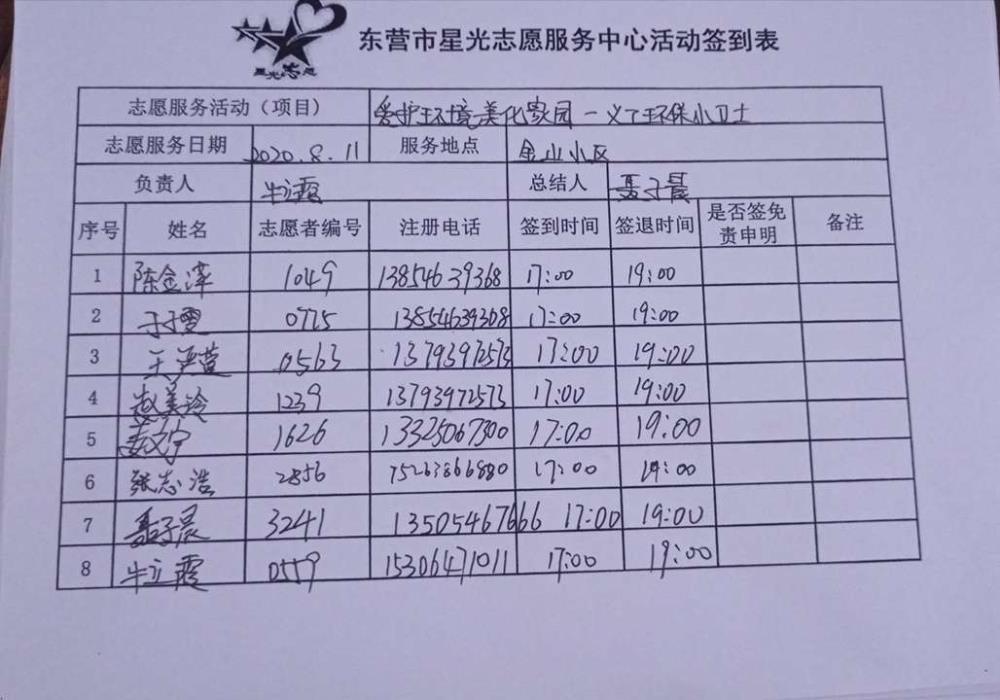 星光志愿
东营市星光志愿服务中心活动签到表
志愿服务活动（项目） 爱护环境美化家园一义工环保小卫士
志愿服务日期 2020.8.11 服务地点 金山小区
负责人 牛立霞 总结人 聂子晨
序号 姓名 志愿者编号 注册电话 签到时间 签退时间 是否签免责申明 备注
1 陈金萍 1049 13854639368 17:00 19:00
2 于子雯 0775 13854639368 17:00 19:00
3 0563 13793972573 17:00 19:00
4 赵美玲 1239 13793972573 17:00 19:00
5 1626 13325067300 17:00 19:00
6 张志浩 2856 15263866880 17:00 19:00
7 聂子晨 3241 13505467666 17:00 19:00
8 牛立霞 0559 15306471011 17:00 19:00